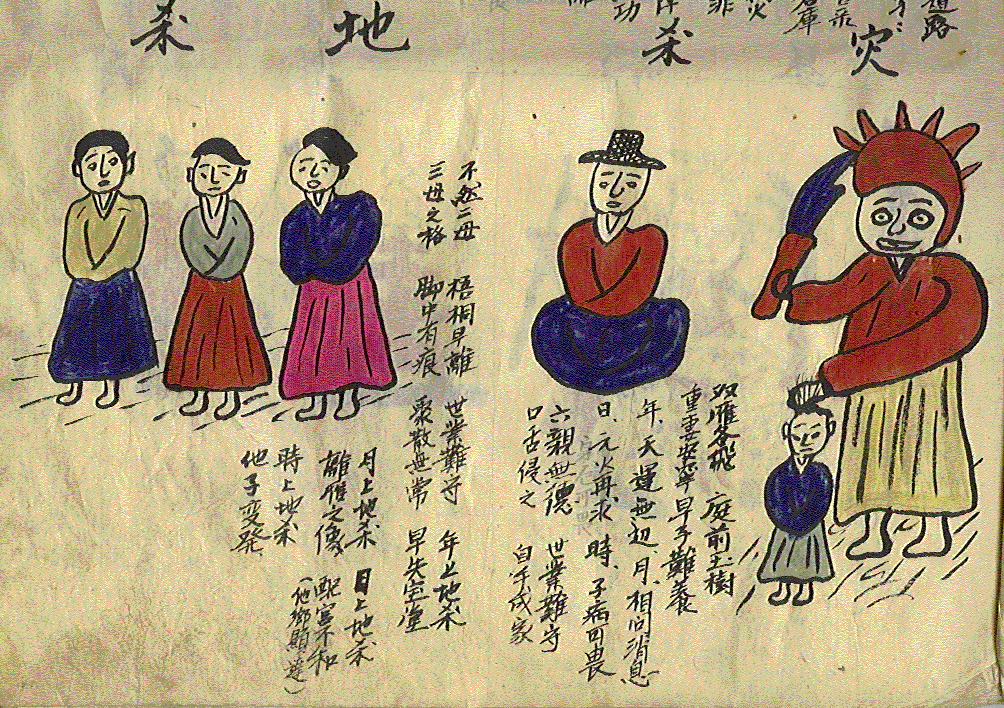 道路
災殺
双雁各飛 庭前玉樹
重重安寧 早子難養
年、天運無辺 月、相问消息
日、元火再求 時、子病可畏
六親無德 世業難守
口舌侵之 自手成家
地殺
不然二母 梧桐早離 世業難守 年上地杀
三母之格 脚中有痕 聚散無常 早失室堂
月上地杀 日上地杀
離雁之像 配宮不和
時上地杀 (他鄉
他子変発